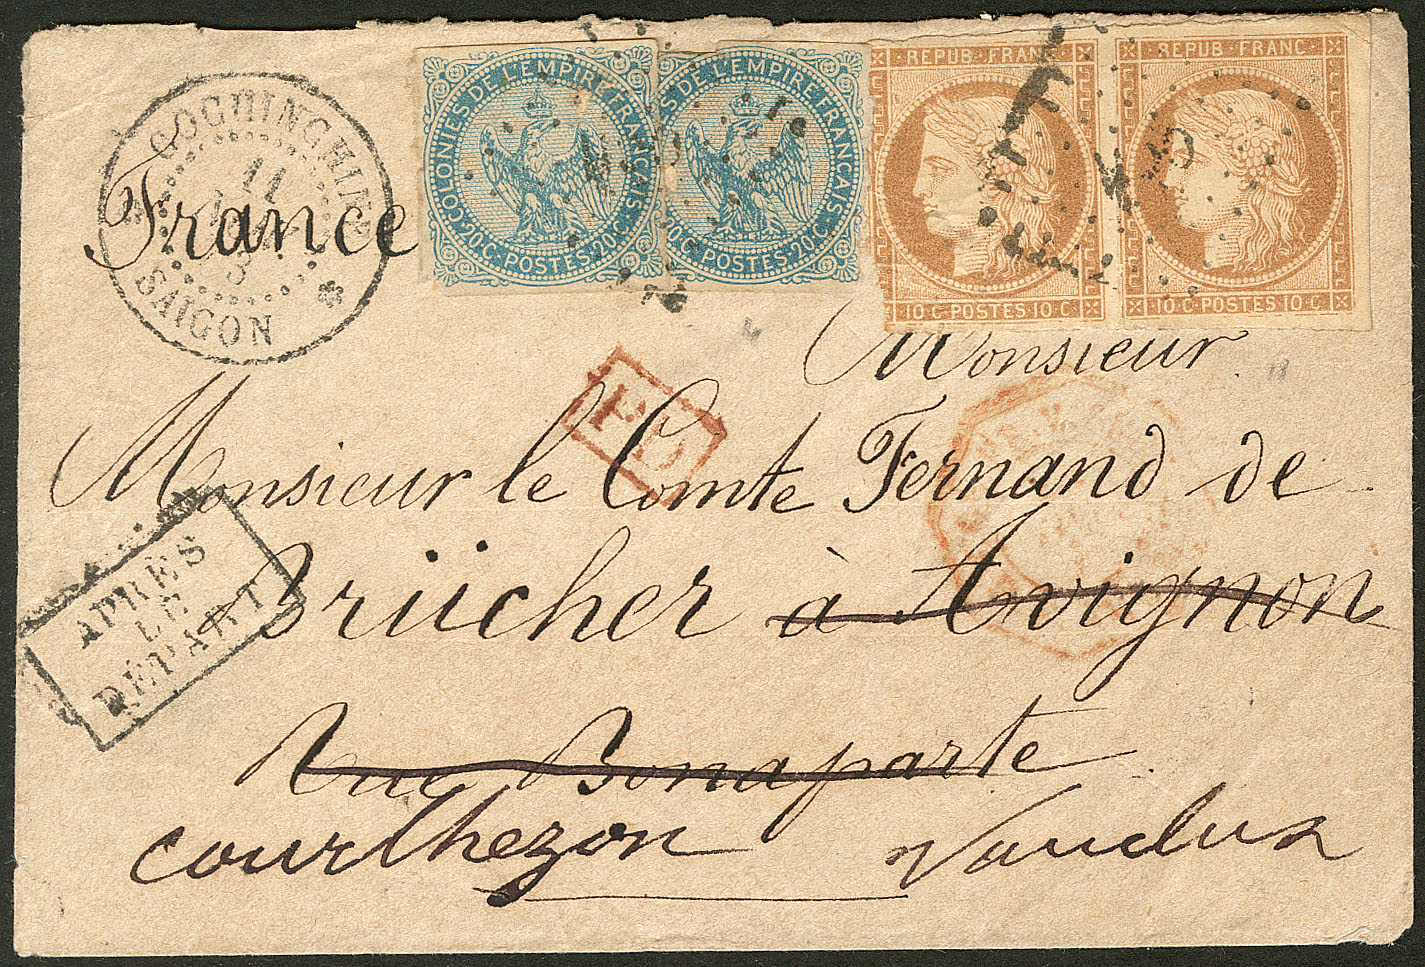 COCHINCHINE
11
SAIGON
France
COLONIES DE L'EMPIRE FRANÇAIS
20C·POSTES·20C
ES DE L'EMPIRE FRANÇAIS
20C·POSTES·20C
REPUB·FRANC·
10·C·POSTES·10·C
REPUB·FRANC·
10·C·POSTES·10·C
Monsieur
PD
Monsieur le Comte Fernand de
Brücher à Avignon
APRES
LE
DÉPART
Rue Bonaparte
Courthezon Vaucluse